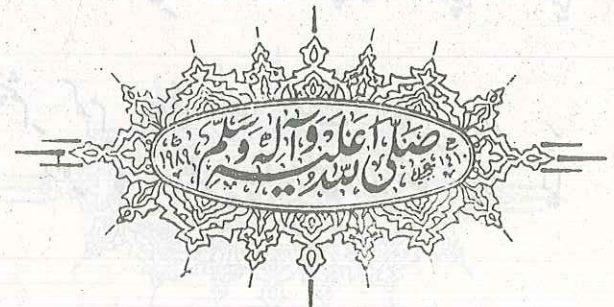 صلى الله عليه وآله وسلم
١٩٨٩